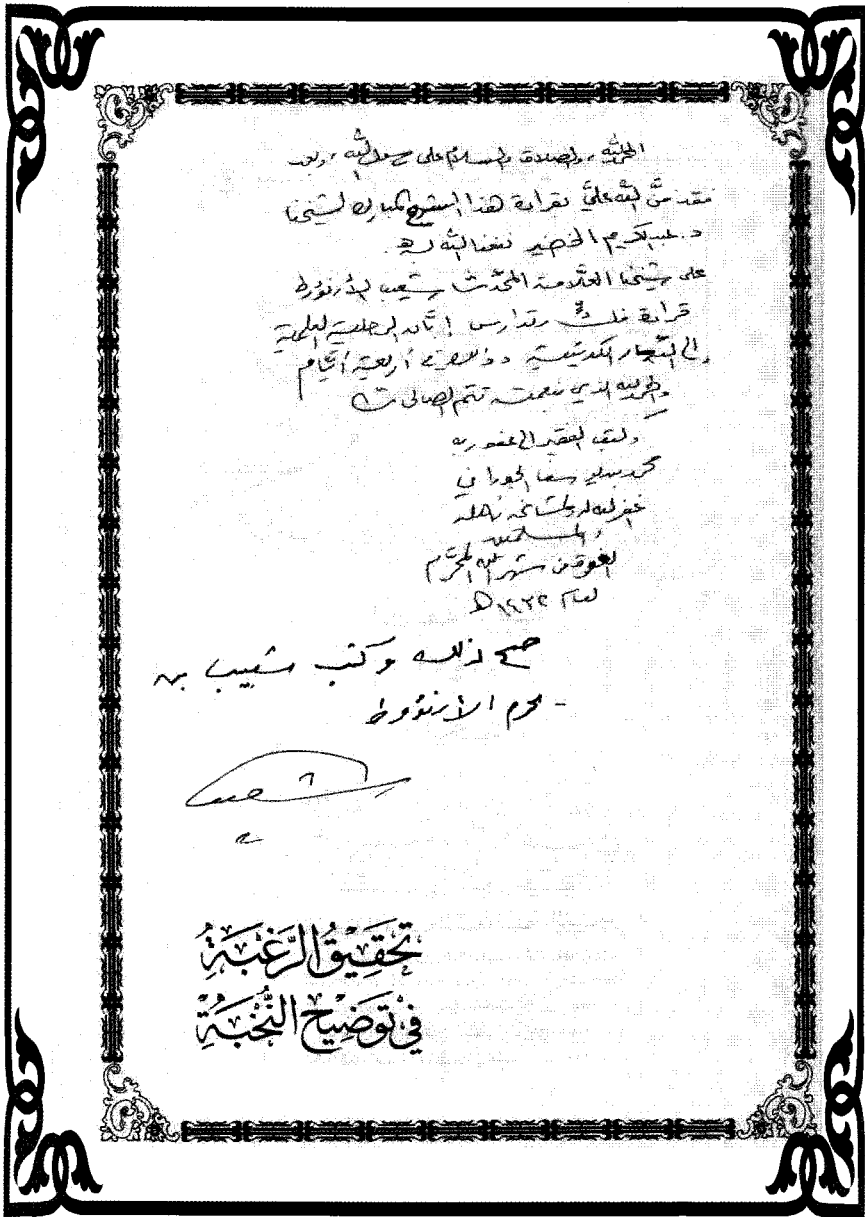 الحمد لله، والصلاة والسلام على رسول الله، وبعد
فقد منَّ الله عليَّ بقراءة هذا الشرح المبارك لشيخنا
د. عبدالكريم الخضير نفعنا الله به
على شيخنا العلّامة المحدّث شعيب الأرنؤوط
قراءة وتدارس إبّان الرحلة العلمية
إلى الكويتية أربعة أيّام
والحمد لله الذي بنعمته تتم الصالحات
وكتب الفقير إلى عفو ربه
محمد الحوراني
غفر الله له ولمشايخه وأهله
والمسلمين
من شهر الله المحرّم
لعام هـ
صح ذلك وكتب شعيب بن
محرم الأرنؤوط
شعيب
تَحْقِيقُ الرَّغْبَةِ
فِي تَوْضِيحِ النُّخْبَةِ